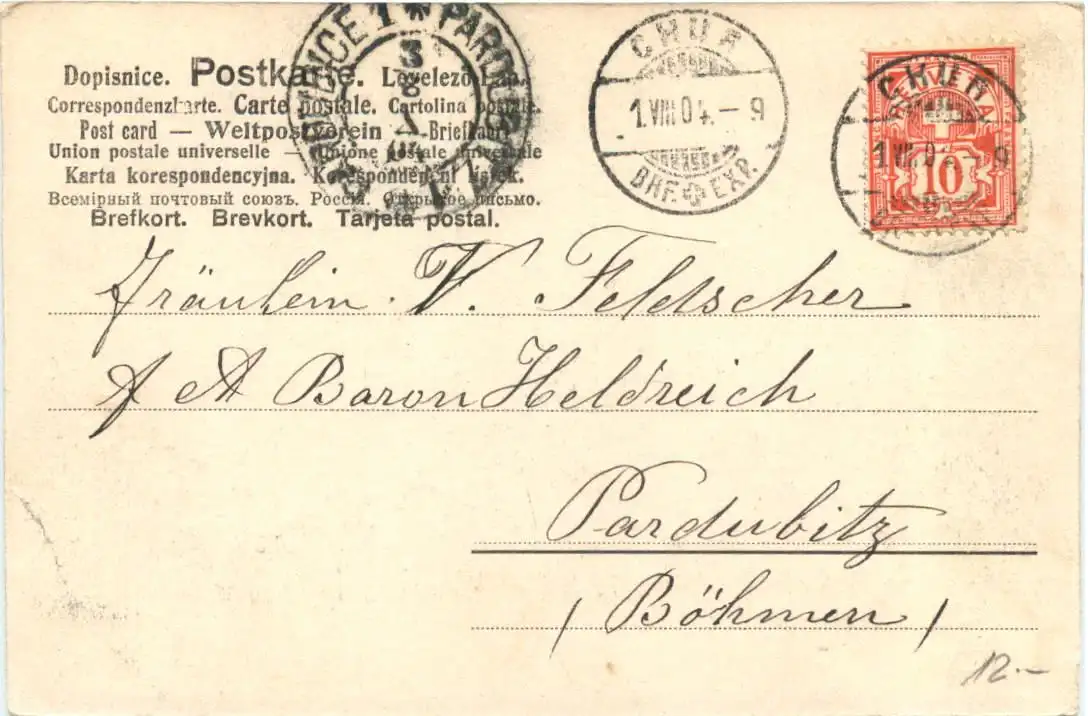 Dopisnice. Postkarte. Levelező-Lap.
Correspondenzkarte. Carte postale. Cartolina postale.
Post card — Weltpostverein — Briefkaart
Union postale universelle — Unione postale universale
Karta korespondencyjna. Korespondenčni listek.
Всемірный почтовый союзъ. Россія. Открытое письмо.
Brefkort. Brevkort. Tarjeta postal.
PARDUBICE 1 * PARDUBITZ 1
3
8
CHUR
1.VIII.04.-9
BHF. EXP.
CHUR
1.VIII.04.-9
HELVETIA
10
Fräulein V. Feldscher
A Baron Heldreich
Pardubitz
(Böhmen)
12.-